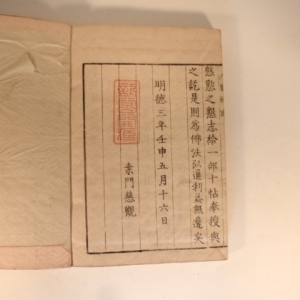 慇懃之懇志給一部十帖奉授與
之訖是則為傳法弘通利益無邊矣
明德三年壬申五月十六日
桑門慈觀